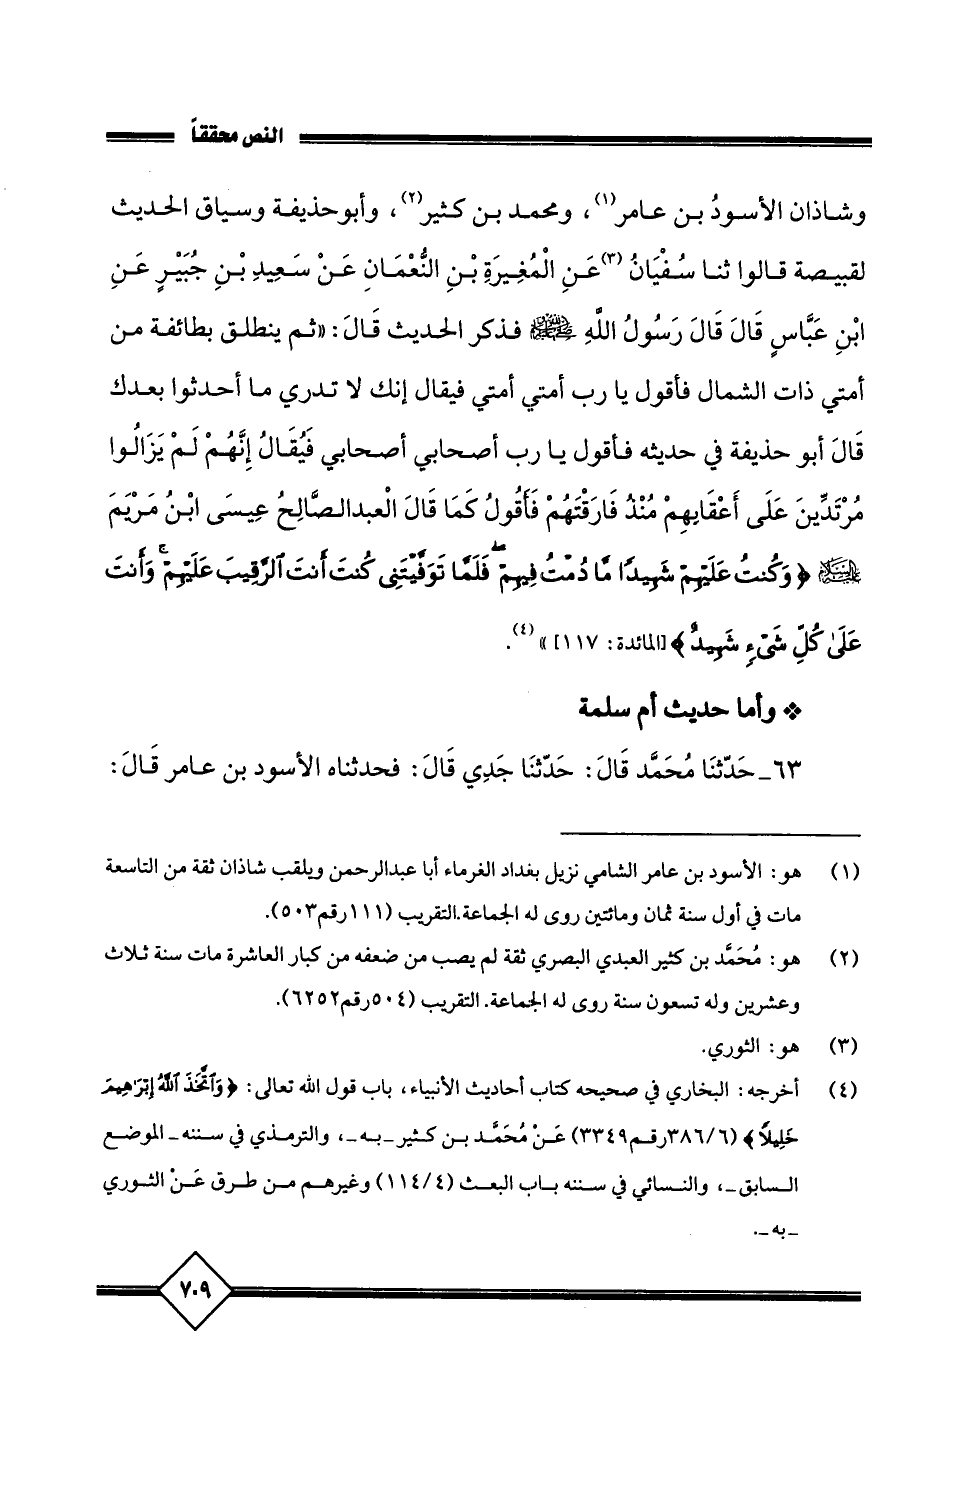 النص محققاً
وشاذان الأسودُ بن عامر(١)، ومحمد بن كثير(٢)، وأبو حذيفة وسياق الحديث
لقبيصة قالوا ثنا سُفْيَانُ(٣) عَنِ الْمُغِيرَةِ بْنِ النُّعْمَانِ عَنْ سَعِيدِ بْنِ جُبَيْرٍ عَنِ
ابْنِ عَبَّاسٍ قَالَ قَالَ رَسُولُ اللَّهِ ﷺ فذكر الحديث قَالَ: «ثم ينطلق بطائفة من
أمتي ذات الشمال فأقول يا رب أمتي أمتي فيقال إنك لا تدري ما أحدثوا بعدك
قَالَ أبو حذيفة في حديثه فأقول يا رب أصحابي أصحابي فَيُقَالُ إِنَّهُمْ لَمْ يَزَالُوا
مُرْتَدِّينَ عَلَى أَعْقَابِهِمْ مُنْذُ فَارَقْتَهُمْ فَأَقُولُ كَمَا قَالَ الْعبدالصَّالِحُ عِيسَى ابْنُ مَرْيَمَ
عليه السلام ﴿وَكُنتُ عَلَيْهِمْ شَهِيدًا مَّا دُمْتُ فِيهِمْ ۖ فَلَمَّا تَوَفَّيْتَنِى كُنتَ أَنتَ ٱلرَّقِيبَ عَلَيْهِمْ ۚ وَأَنتَ
عَلَىٰ كُلِّ شَىْءٍ شَهِيدٌ﴾ [المائدة: ١١٧]»(٤).
❖ وأما حديث أم سلمة
٦٣ـ حَدّثنَا مُحَمَّد قَالَ: حَدّثنَا جَدِي قَالَ: فحدثناه الأسود بن عامر قَالَ:
(١) هو: الأسود بن عامر الشامي نزيل بغداد الغرماء أبا عبدالرحمن ويلقب شاذان ثقة من التاسعة
مات في أول سنة ثمان ومائتين روى له الجماعة.التقريب (١١١رقم٥٠٣).
(٢) هو: مُحَمَّد بن كثير العبدي البصري ثقة لم يصب من ضعفه من كبار العاشرة مات سنة ثلاث
وعشرين وله تسعون سنة روى له الجماعة. التقريب (٥٠٤رقم٦٢٥٢).
(٣) هو: الثوري.
(٤) أخرجه: البخاري في صحيحه كتاب أحاديث الأنبياء، باب قول الله تعالى: ﴿وَٱتَّخَذَ ٱللَّهُ إِبْرَٰهِيمَ
خَلِيلًا﴾ (٣٨٦/٦رقم٣٣٤٩) عَنْ مُحَمَّد بن كثير ـ به ـ، والترمذي في سننه ـ الموضع
السابق ـ، والنسائي في سننه باب البعث (١١٤/٤) وغيرهم من طرق عَنْ الثوري
ـ به ـ.
٧٠٩